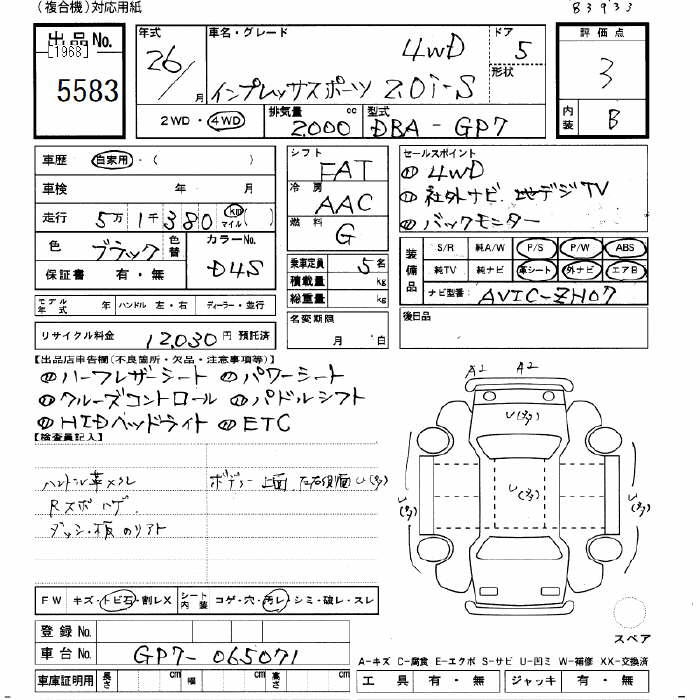 (複合機)対応用紙
83933
出品No.
[1968]
5583
年式
26/
月
車名・グレード
4WD
インプレッサスポーツ 2.0i-S
ドア
5
形状
評価点
3
2WD・4WD
排気量
cc
2000
型式
DBA-GP7
内装
B
車歴
自家用・( )
車検
年 月
走行
5万1千380
km
マイル
( )
色
ブラック
色替
カラーNo.
D4S
保証書
有・無
モデル年式
年
ハンドル
左・右
ディーラー・並行
リサイクル料金
12,030円 預託済
シフト
FAT
冷房
AAC
燃料
G
乗車定員
5名
積載量
kg
総重量
kg
名変期限
月 日
セールスポイント
4WD
社外ナビ 地デジTV
バックモニター
装備品
S/R
純A/W
P/S
P/W
ABS
純TV
純ナビ
革シート
外ナビ
エアB
ナビ型番
AVIC-ZH07
後日品
【出品店申告欄(不良箇所・欠品・注意事項等)】
ハーフレザーシート パワーシート
クルーズコントロール パドルシフト
HIDヘッドライト ETC
【検査員記入】
ハンドル革スレ
ボデー上面 左右側面U(多)
Rスポハゲ
ダッシュ板のリフト
A2
A2
U(多)
U(多)
U(多)
U(多)
スペア
FW
キズ・トビ石・割レX
シート内装
コゲ・穴・汚レ・シミ・破レ・スレ
登録No.
車台No.
GP7-065071
車庫証明用
長さ
cm
幅
cm
高さ
cm
A-キズ C-腐食 E-エクボ S-サビ U-凹ミ W-補修 XX-交換済
工具
有・無
ジャッキ
有・無